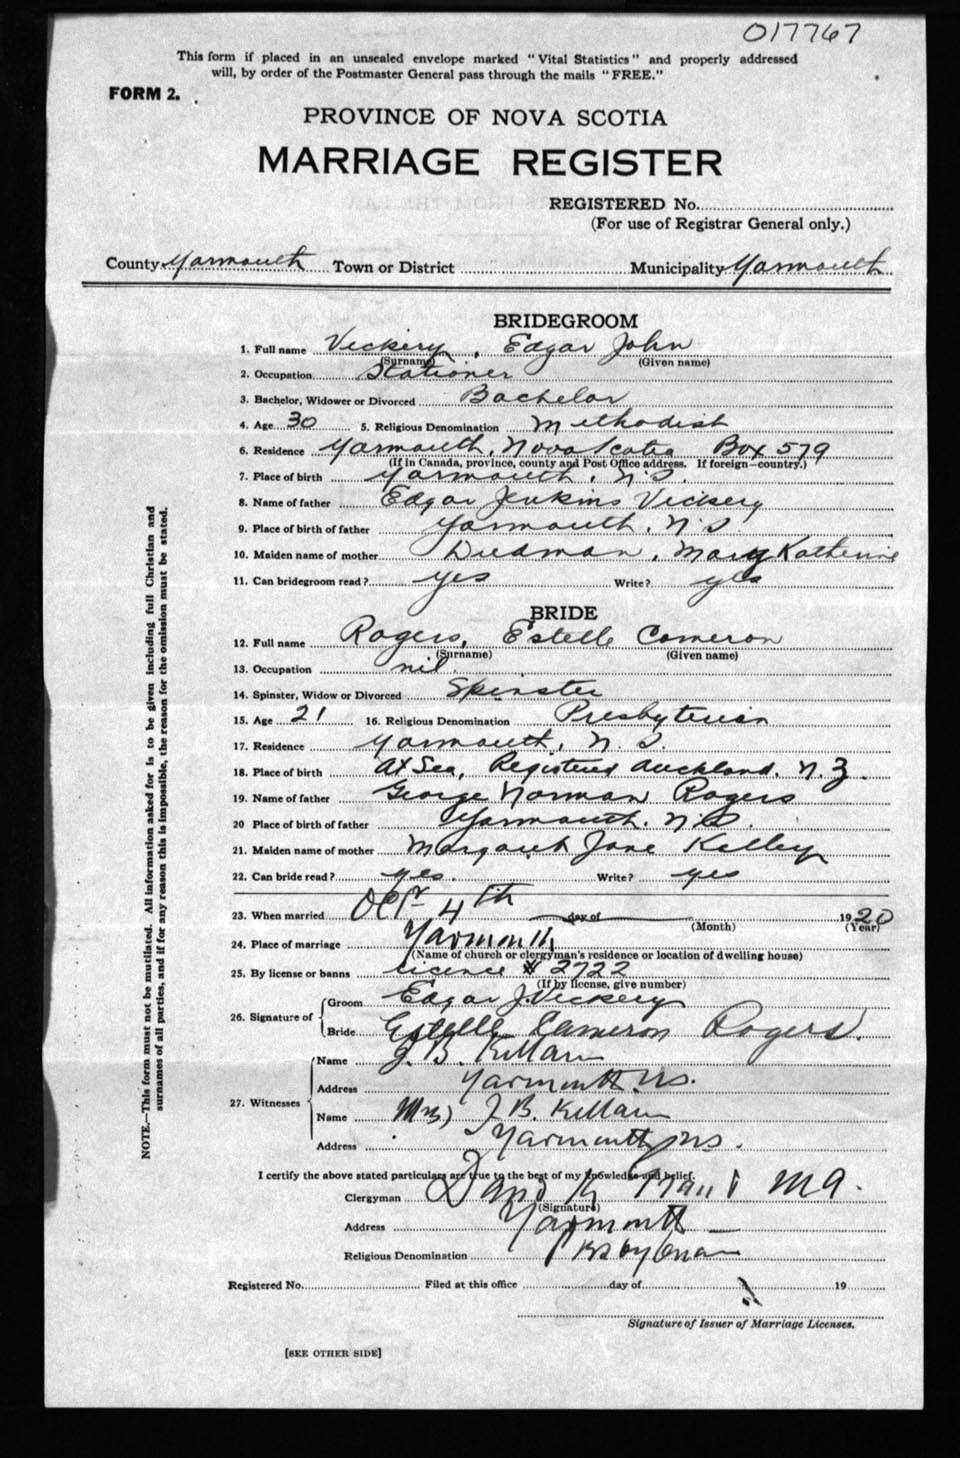 017767
This form if placed in an unsealed envelope marked "Vital Statistics" and properly addressed
will, by order of the Postmaster General pass through the mails "FREE."
FORM 2.
PROVINCE OF NOVA SCOTIA
MARRIAGE REGISTER
REGISTERED No.
(For use of Registrar General only.)
County Yarmouth Town or District Municipality Yarmouth
BRIDEGROOM
1. Full name Vickery, Edgar John
(Surname) (Given name)
2. Occupation Stationer
3. Bachelor, Widower or Divorced Bachelor
4. Age 30 5. Religious Denomination Methodist
6. Residence Yarmouth, Nova Scotia Box 579
(If in Canada, province, county and Post Office address. If foreign—country.)
7. Place of birth Yarmouth, N.S.
8. Name of father Edgar Jenkins Vickery
9. Place of birth of father Yarmouth, N.S.
10. Maiden name of mother Dudman, Mary Katherine
11. Can bridegroom read? yes Write? yes
BRIDE
12. Full name Rogers, Estelle Cameron
(Surname) (Given name)
13. Occupation nil.
14. Spinster, Widow or Divorced Spinster
15. Age 21 16. Religious Denomination Presbyterian
17. Residence Yarmouth, N.S.
18. Place of birth At Sea, Registered Auckland, N.Z.
19. Name of father George Norman Rogers
20 Place of birth of father Yarmouth, N.S.
21. Maiden name of mother Margaret Jane Kelley
22. Can bride read? yes. Write? yes
23. When married Octr 4th day of 1920
(Month) (Year)
24. Place of marriage Yarmouth
(Name of church or clergyman's residence or location of dwelling house)
25. By license or banns licence # 2722
(If by license, give number)
26. Signature of Groom Edgar J. Vickery
Bride Estelle Cameron Rogers.
27. Witnesses
Name J. B. Killam
Address Yarmouth N.S.
Name Mrs J. B. Killam
Address Yarmouth, N.S.
I certify the above stated particulars are true to the best of my knowledge and belief.
Clergyman David M.A.
(Signature)
Address Yarmouth
Religious Denomination Presbyterian
Registered No. Filed at this office day of 19
Signature of Issuer of Marriage Licenses.
[SEE OTHER SIDE]
NOTE.—This form must not be mutilated. All information asked for is to be given including full Christian and
surnames of all parties, and if for any reason this is impossible, the reason for the omission must be stated.